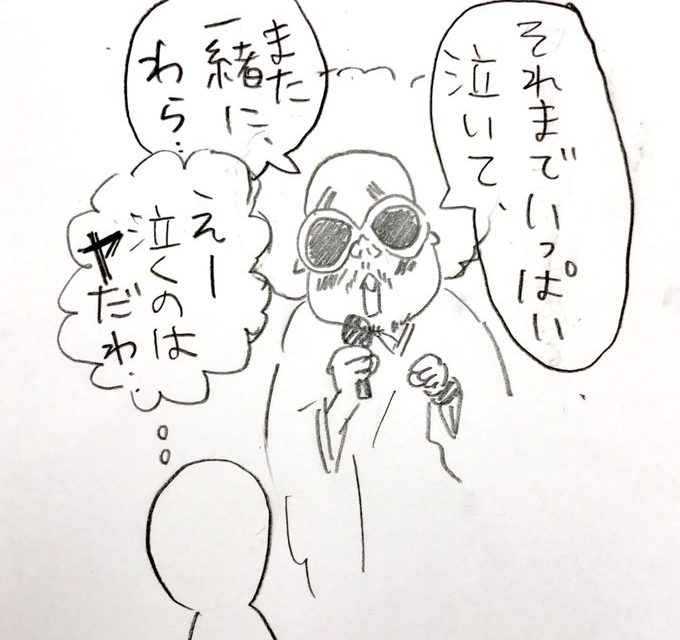 それまでいっぱい
泣いて、
また
一緒に、
わら…
えー
泣くのは
ヤだわ…